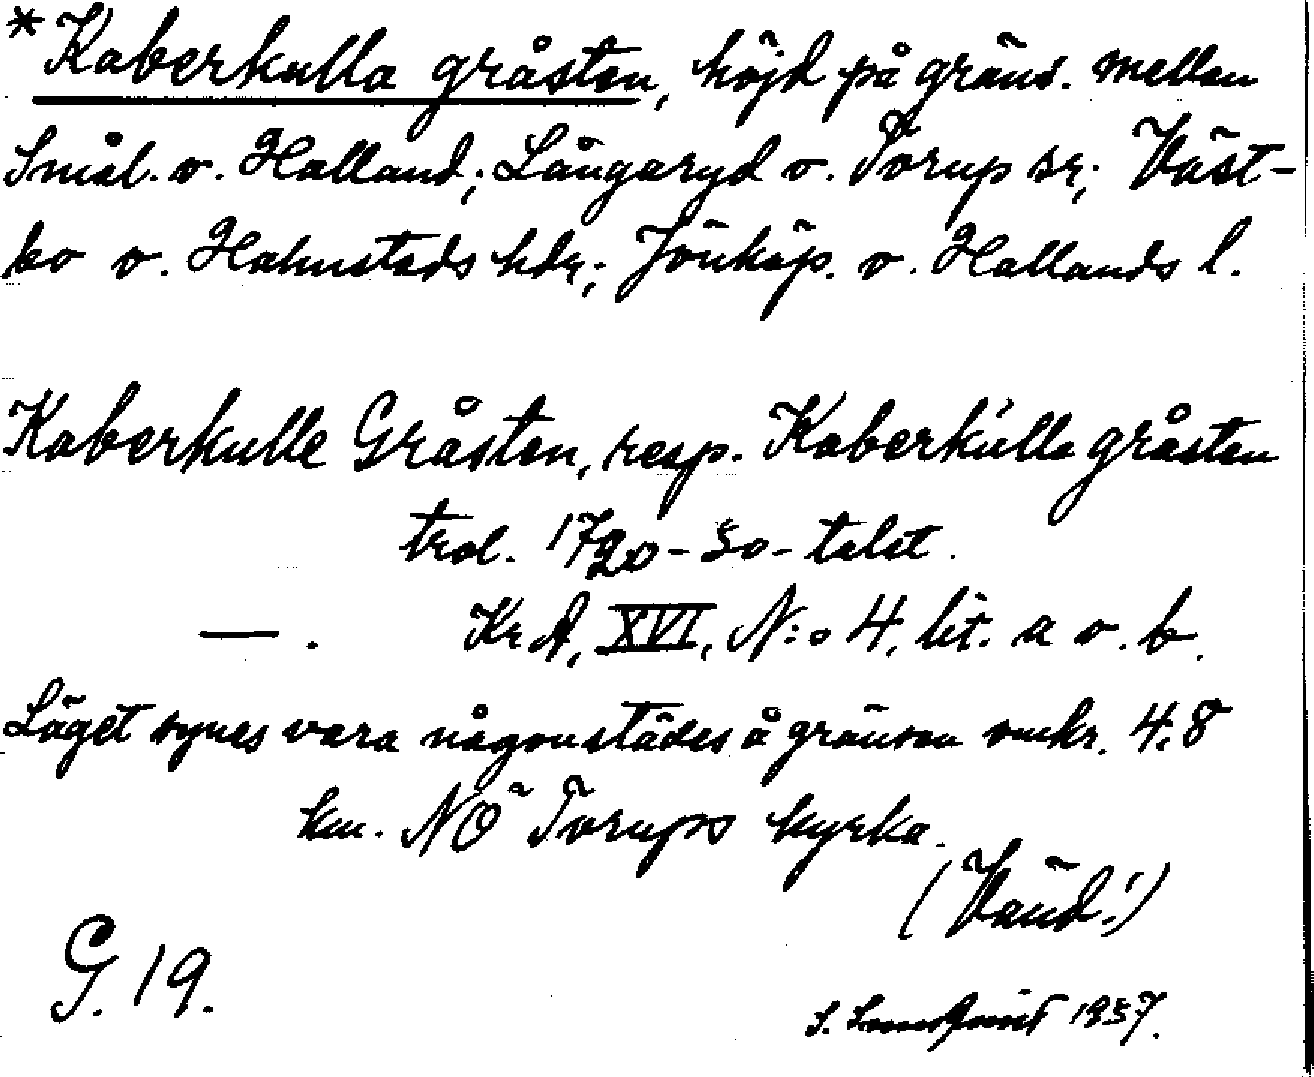 *Kaberkulla gråsten, höjd på gräns. mellan
Smål. o. Halland; Långaryd o. Torup sr; Väst-
bo o. Halmstads hdr; Jönköp. o. Hallands l.
Kaberkulle Gråsten, resp. Kaberkulla gråsten
trol. 1720-30-talet.
— . KrA, XVI, N:o 4, lit. a o. b.
Läget synes vara någonstädes å gränsen omkr. 4.8
km. NÖ Torups kyrka.
(Vänd!)
G. 19.
S. 1937.